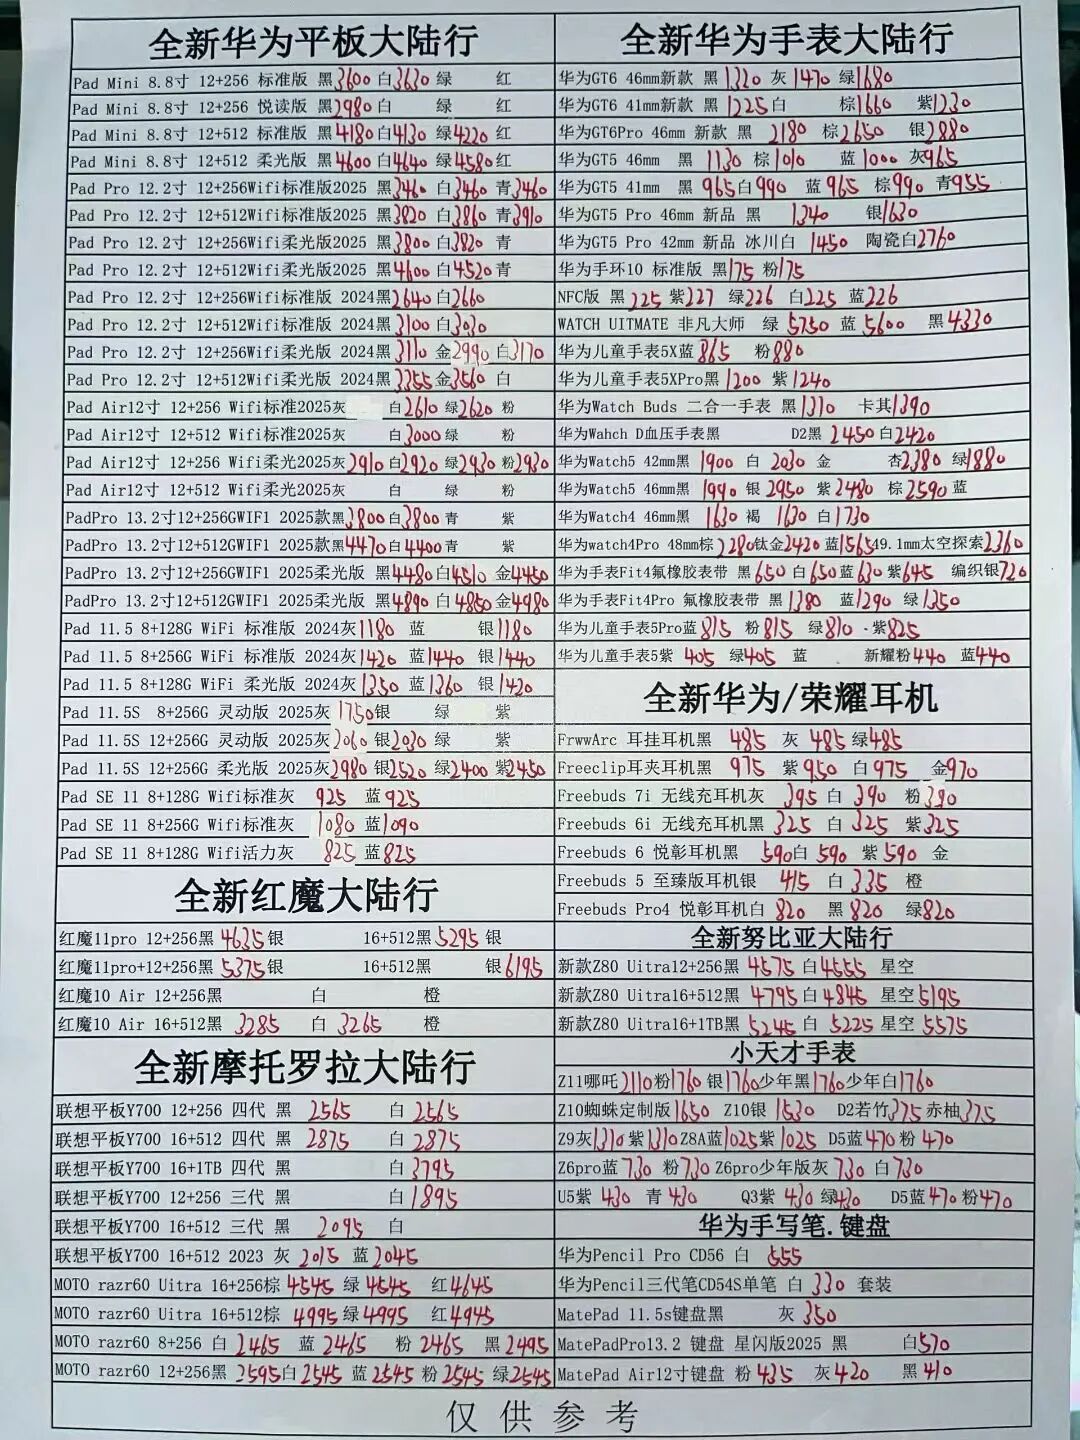 全新华为平板大陆行
Pad Mini 8.8寸 12+256 标准版 黑3600 白3630 绿 红
Pad Mini 8.8寸 12+256 悦读版 黑2980 白 绿 红
Pad Mini 8.8寸 12+512 标准版 黑4180 白4130 绿4220 红
Pad Mini 8.8寸 12+512 柔光版 黑4600 白4640 绿4580 红
Pad Pro 12.2寸 12+256Wifi标准版2025 黑3460 白3460 青3460
Pad Pro 12.2寸 12+512Wifi标准版2025 黑3820 白3860 青3910
Pad Pro 12.2寸 12+256Wifi柔光版2025 黑3800 白3820 青
Pad Pro 12.2寸 12+512Wifi柔光版2025 黑4600 白4520 青
Pad Pro 12.2寸 12+256Wifi标准版 2024黑2640 白2660
Pad Pro 12.2寸 12+512Wifi标准版 2024黑3100 白3030
Pad Pro 12.2寸 12+256Wifi柔光版 2024黑3110 金2990 白3170
Pad Pro 12.2寸 12+512Wifi柔光版 2024黑3355 金3560 白
Pad Air12寸 12+256 Wifi标准2025灰 白2610 绿2620 粉
Pad Air12寸 12+512 Wifi标准2025灰 白3000 绿 粉
Pad Air12寸 12+256 Wifi柔光2025灰2910 白2920 绿2930 粉2930
Pad Air12寸 12+512 Wifi柔光2025灰 白 绿 粉
PadPro 13.2寸12+256GWIF1 2025款黑3800 白3800 青 紫
PadPro 13.2寸12+512GWIF1 2025款黑4470 白4400 青 紫
PadPro 13.2寸12+256GWIF1 2025柔光版 黑4480 白4510 金4450
PadPro 13.2寸12+512GWIF1 2025柔光版 黑4890 白4850 金4980
Pad 11.5 8+128G WiFi 标准版 2024灰1180 蓝 银1180
Pad 11.5 8+256G WiFi 标准版 2024灰1420 蓝1440 银1440
Pad 11.5 8+128G WiFi 柔光版 2024灰1350 蓝1360 银1420
Pad 11.5S 8+256G 灵动版 2025灰1750 银 绿 紫
Pad 11.5S 12+256G 灵动版 2025灰2060 银2030 绿 紫
Pad 11.5S 12+256G 柔光版 2025灰2980 银2520 绿2400 紫2450
Pad SE 11 8+128G Wifi标准灰 925 蓝925
Pad SE 11 8+256G Wifi标准灰 1080 蓝1090
Pad SE 11 8+128G Wifi活力灰 825 蓝825
全新红魔大陆行
红魔11pro 12+256黑 4635 银 16+512黑5295 银
红魔11pro+12+256黑 5375 银 16+512黑 银6195
红魔10 Air 12+256黑 白 橙
红魔10 Air 16+512黑 3285 白 3265 橙
全新摩托罗拉大陆行
联想平板Y700 12+256 四代 黑 2565 白 2565
联想平板Y700 16+512 四代 黑 2875 白 2875
联想平板Y700 16+1TB 四代 黑 白 3795
联想平板Y700 12+256 三代 黑 白1895
联想平板Y700 16+512 三代 黑 2095 白
联想平板Y700 16+512 2023 灰 2015 蓝2045
MOTO razr60 Uitra 16+256棕 4545 绿 4545 红4645
MOTO razr60 Uitra 16+512棕 4995 绿 4995 红4945
MOTO razr60 8+256 白 2465 蓝 2465 粉 2465 黑 2495
MOTO razr60 12+256黑 2595 白2545 蓝 2545 粉 2545 绿2545
全新华为手表大陆行
华为GT6 46mm新款 黑 1320 灰 1470 绿1680
华为GT6 41mm新款 黑 1225 白 棕1660 紫1230
华为GT6Pro 46mm 新款 黑 2180 棕2650 银2880
华为GT5 46mm 黑 1130 棕1010 蓝 1000 灰965
华为GT5 41mm 黑 965 白990 蓝 965 棕990 青955
华为GT5 Pro 46mm 新品 黑 1340 银1630
华为GT5 Pro 42mm 新品 冰川白 1450 陶瓷白2760
华为手环10 标准版 黑175 粉175
NFC版 黑 225 紫227 绿226 白225 蓝226
WATCH UITMATE 非凡大师 绿 5750 蓝 5600 黑4330
华为儿童手表5X蓝 865 粉880
华为儿童手表5XPro黑 1200 紫1240
华为Watch Buds 二合一手表 黑1310 卡其1390
华为Wahch D血压手表黑 D2黑 2450 白2420
华为Watch5 42mm黑 1900 白 2030 金 杏2380 绿1880
华为Watch5 46mm黑 1990 银 2950 紫 2480 棕 2590 蓝
华为Watch4 46mm黑 1630 褐 1630 白1730
华为watch4Pro 48mm棕 2280 钛金2420 蓝1565 49.1mm太空探索2360
华为手表Fit4氟橡胶表带 黑650 白650 蓝630 紫645 编织银720
华为手表Fit4Pro 氟橡胶表带 黑1380 蓝1290 绿1350
华为儿童手表5Pro蓝815 粉815 绿810 紫825
华为儿童手表5紫 405 绿405 蓝 新耀粉440 蓝440
全新华为/荣耀耳机
FrwwArc 耳挂耳机黑 485 灰 485 绿485
Freeclip耳夹耳机黑 975 紫950 白975 金970
Freebuds 7i 无线充耳机灰 395 白 390 粉390
Freebuds 6i 无线充耳机黑 325 白 325 紫325
Freebuds 6 悦彰耳机黑 590 白 590 紫 590 金
Freebuds 5 至臻版耳机银 415 白 335 橙
Freebuds Pro4 悦彰耳机白 820 黑 820 绿820
全新努比亚大陆行
新款Z80 Uitra12+256黑 4575 白4555 星空
新款Z80 Uitra16+512黑 4795 白4845 星空5195
新款Z80 Uitra16+1TB黑 5245 白 5225 星空 5575
小天才手表
Z11哪吒2110 粉1760 银1760 少年黑1760 少年白1760
Z10蜘蛛定制版1650 Z10银 1530 D2若竹375 赤柚375
Z9灰1310 紫1310 Z8A蓝1025 紫1025 D5蓝470 粉 470
Z6pro蓝730 粉730 Z6pro少年版灰 730 白730
U5紫 430 青 430 Q3紫 430 绿430 D5蓝470 粉470
华为手写笔.键盘
华为Pencil Pro CD56 白 555
华为Pencil三代笔CD54S单笔 白 330 套装
MatePad 11.5s键盘黑 灰 350
MatePadPro13.2 键盘 星闪版2025 黑 白570
MatePad Air12寸键盘 粉 435 灰420 黑410
仅供参考